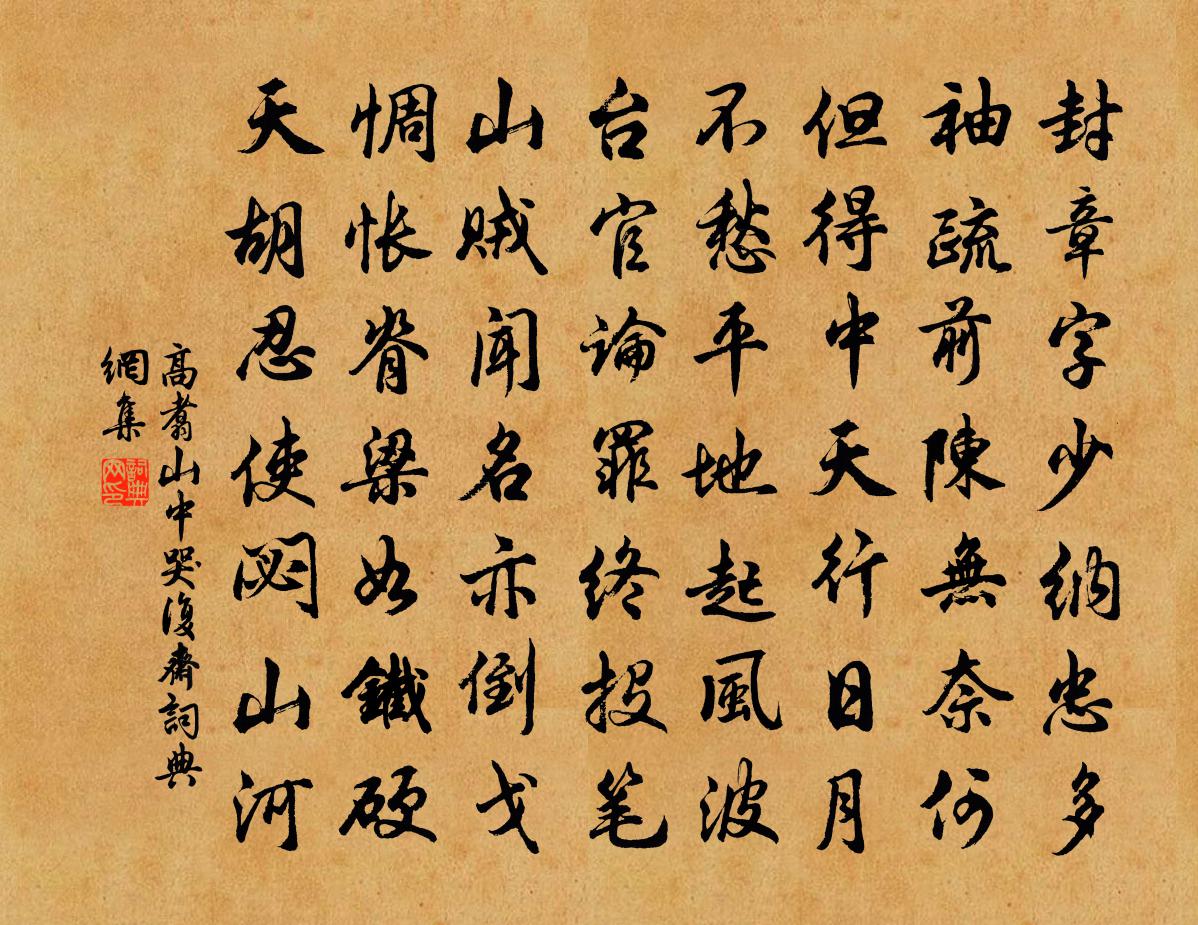 封章字少納忠多
袖疏前陳無奈何
但得中天行日月
不愁平地起風波
台官論罪終投笔
山賊聞名亦倒戈
惆怅脊梁如鐵硬
天胡忍使閟山河
高翥山中哭復齋詞典
網集
詞典
网印